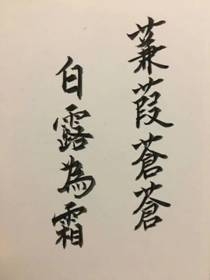 蒹葭蒼蒼
白露為霜